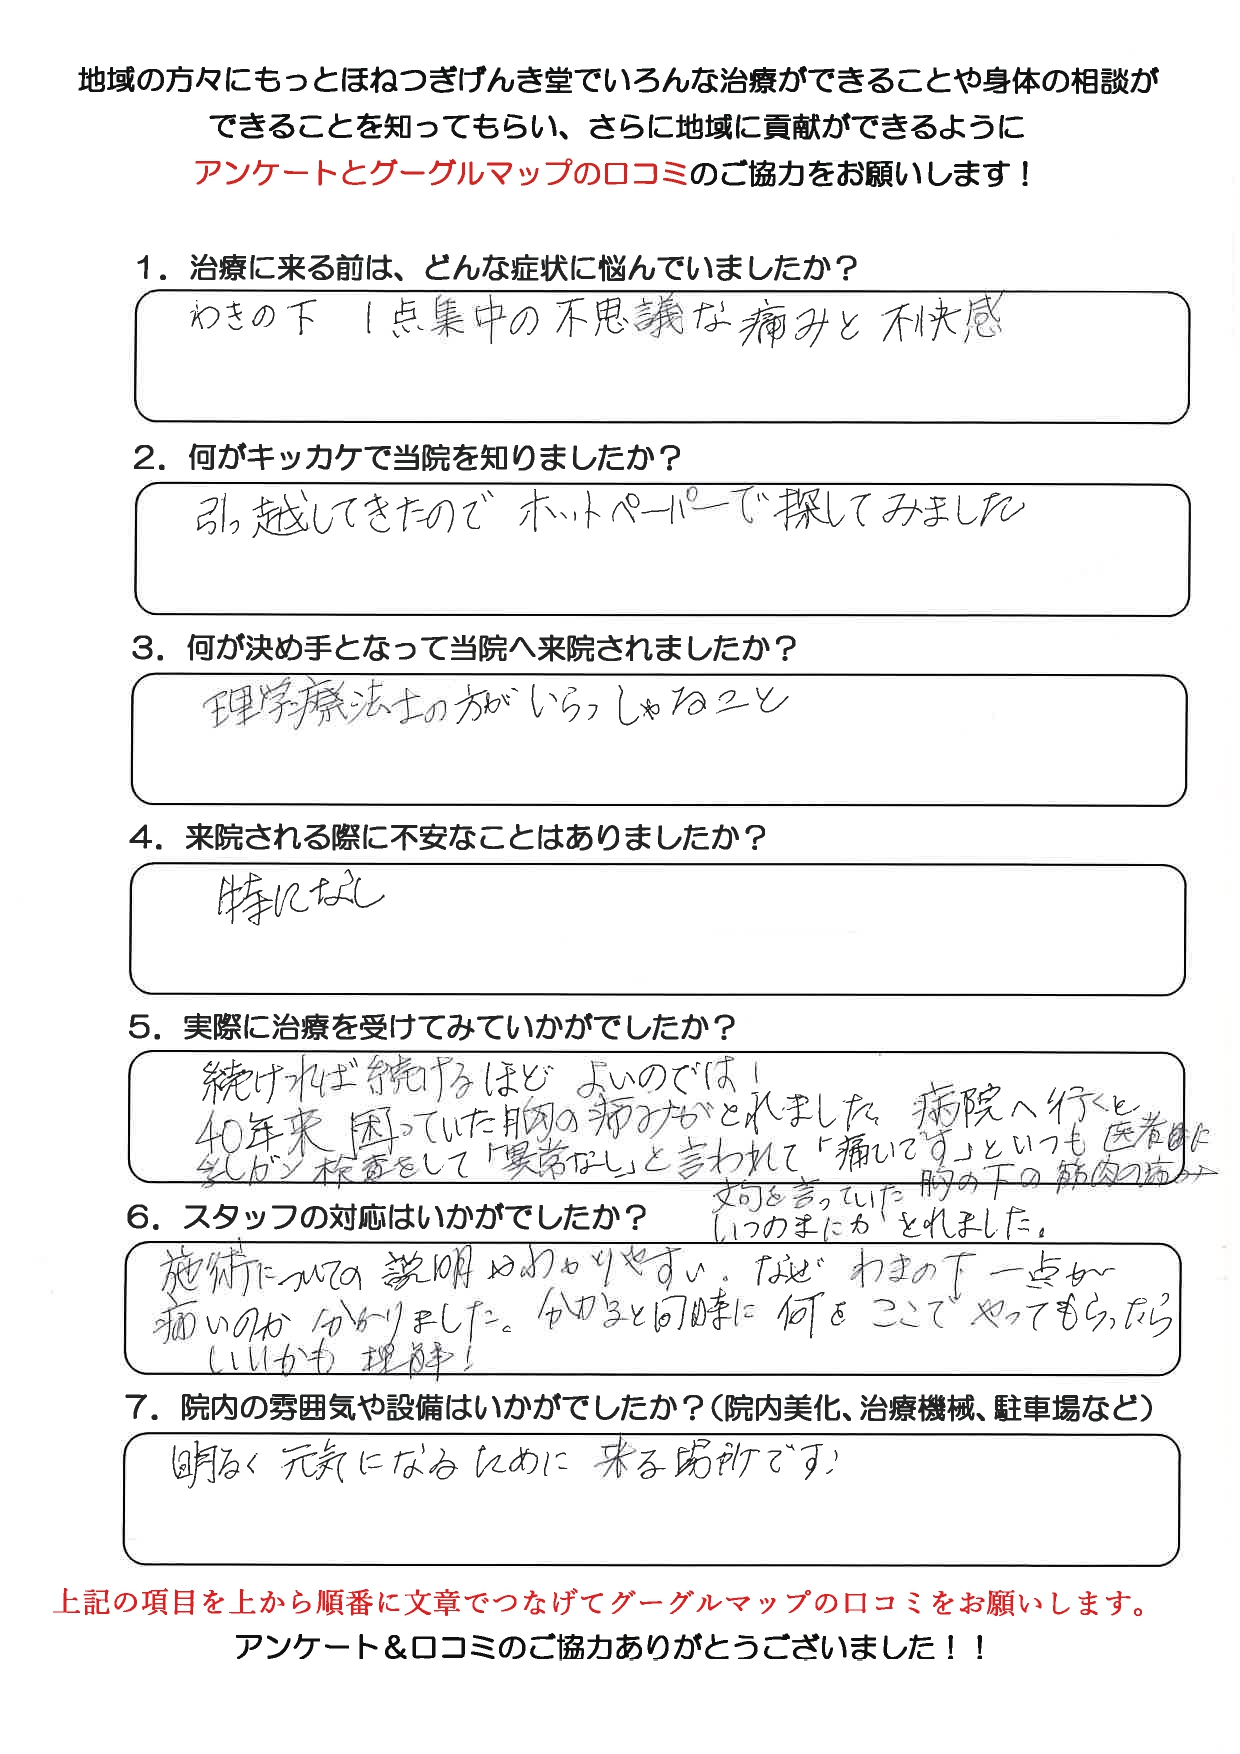 地域の方々にもっとほねつぎげんき堂でいろんな治療ができることや身体の相談が
できることを知ってもらい、さらに地域に貢献ができるように
アンケートとグーグルマップの口コミのご協力をお願いします！
1．治療に来る前は、どんな症状に悩んでいましたか？
わきの下 1点集中の不思議な痛みと不快感
2．何がキッカケで当院を知りましたか？
引っ越してきたので ホットペーパーで探してみました
3．何が決め手となって当院へ来院されましたか？
理学療法士の方がいらっしゃること
4．来院される際に不安なことはありましたか？
特になし
5．実際に治療を受けてみていかがでしたか？
続ければ続けるほど よいのでは！
40年来 困っていた胸の痛みがとれました 病院へ行くと
乳ガン検査をして「異常なし」と言われて「痛いです」といつも 医者に
文句を言っていた 胸の下の筋肉の痛み
いつのまにか とれました。
6．スタッフの対応はいかがでしたか？
施術についての説明はわかりやすい。なぜ わきの下一点が
痛いのか 分かりました。分かると同時に 何を ここで やってもらったら
いいかも 理解！
7．院内の雰囲気や設備はいかがでしたか？（院内美化、治療機械、駐車場など）
明るく 元気になるために 来る場所です！
上記の項目を上から順番に文章でつなげてグーグルマップの口コミをお願いします。
アンケート＆口コミのご協力ありがとうございました！！